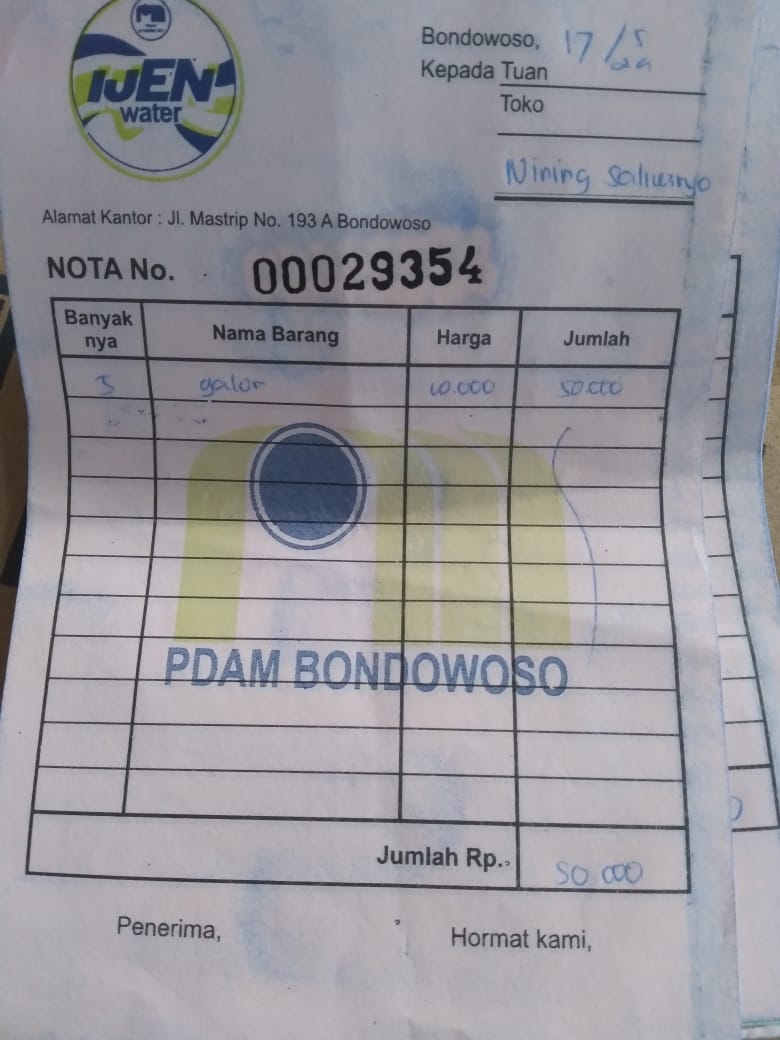 IJEN
water
Bondowoso, 17/5
Kepada Tuan
Toko
Nining
Alamat Kantor : Jl. Mastrip No. 193 A Bondowoso
NOTA No. 00029354
Banyak nya Nama Barang Harga Jumlah
5 galon 10.000 50.000
PDAM BONDOWOSO
Jumlah Rp. 50.000
Penerima, Hormat kami,